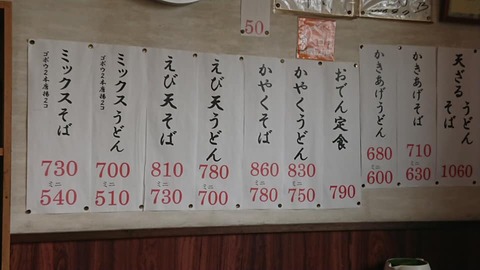 50
天ざる うどん
そば
1060
かきあげそば
710
ミニ
630
かきあげうどん
680
ミニ
600
おでん定食
790
かやくうどん
830
ミニ
750
かやくそば
860
ミニ
780
えび天うどん
780
ミニ
700
えび天そば
810
ミニ
730
ミックスうどん
ゴボウ2本唐揚2コ
700
ミニ
510
ミックスそば
ゴボウ2本唐揚2コ
730
ミニ
540